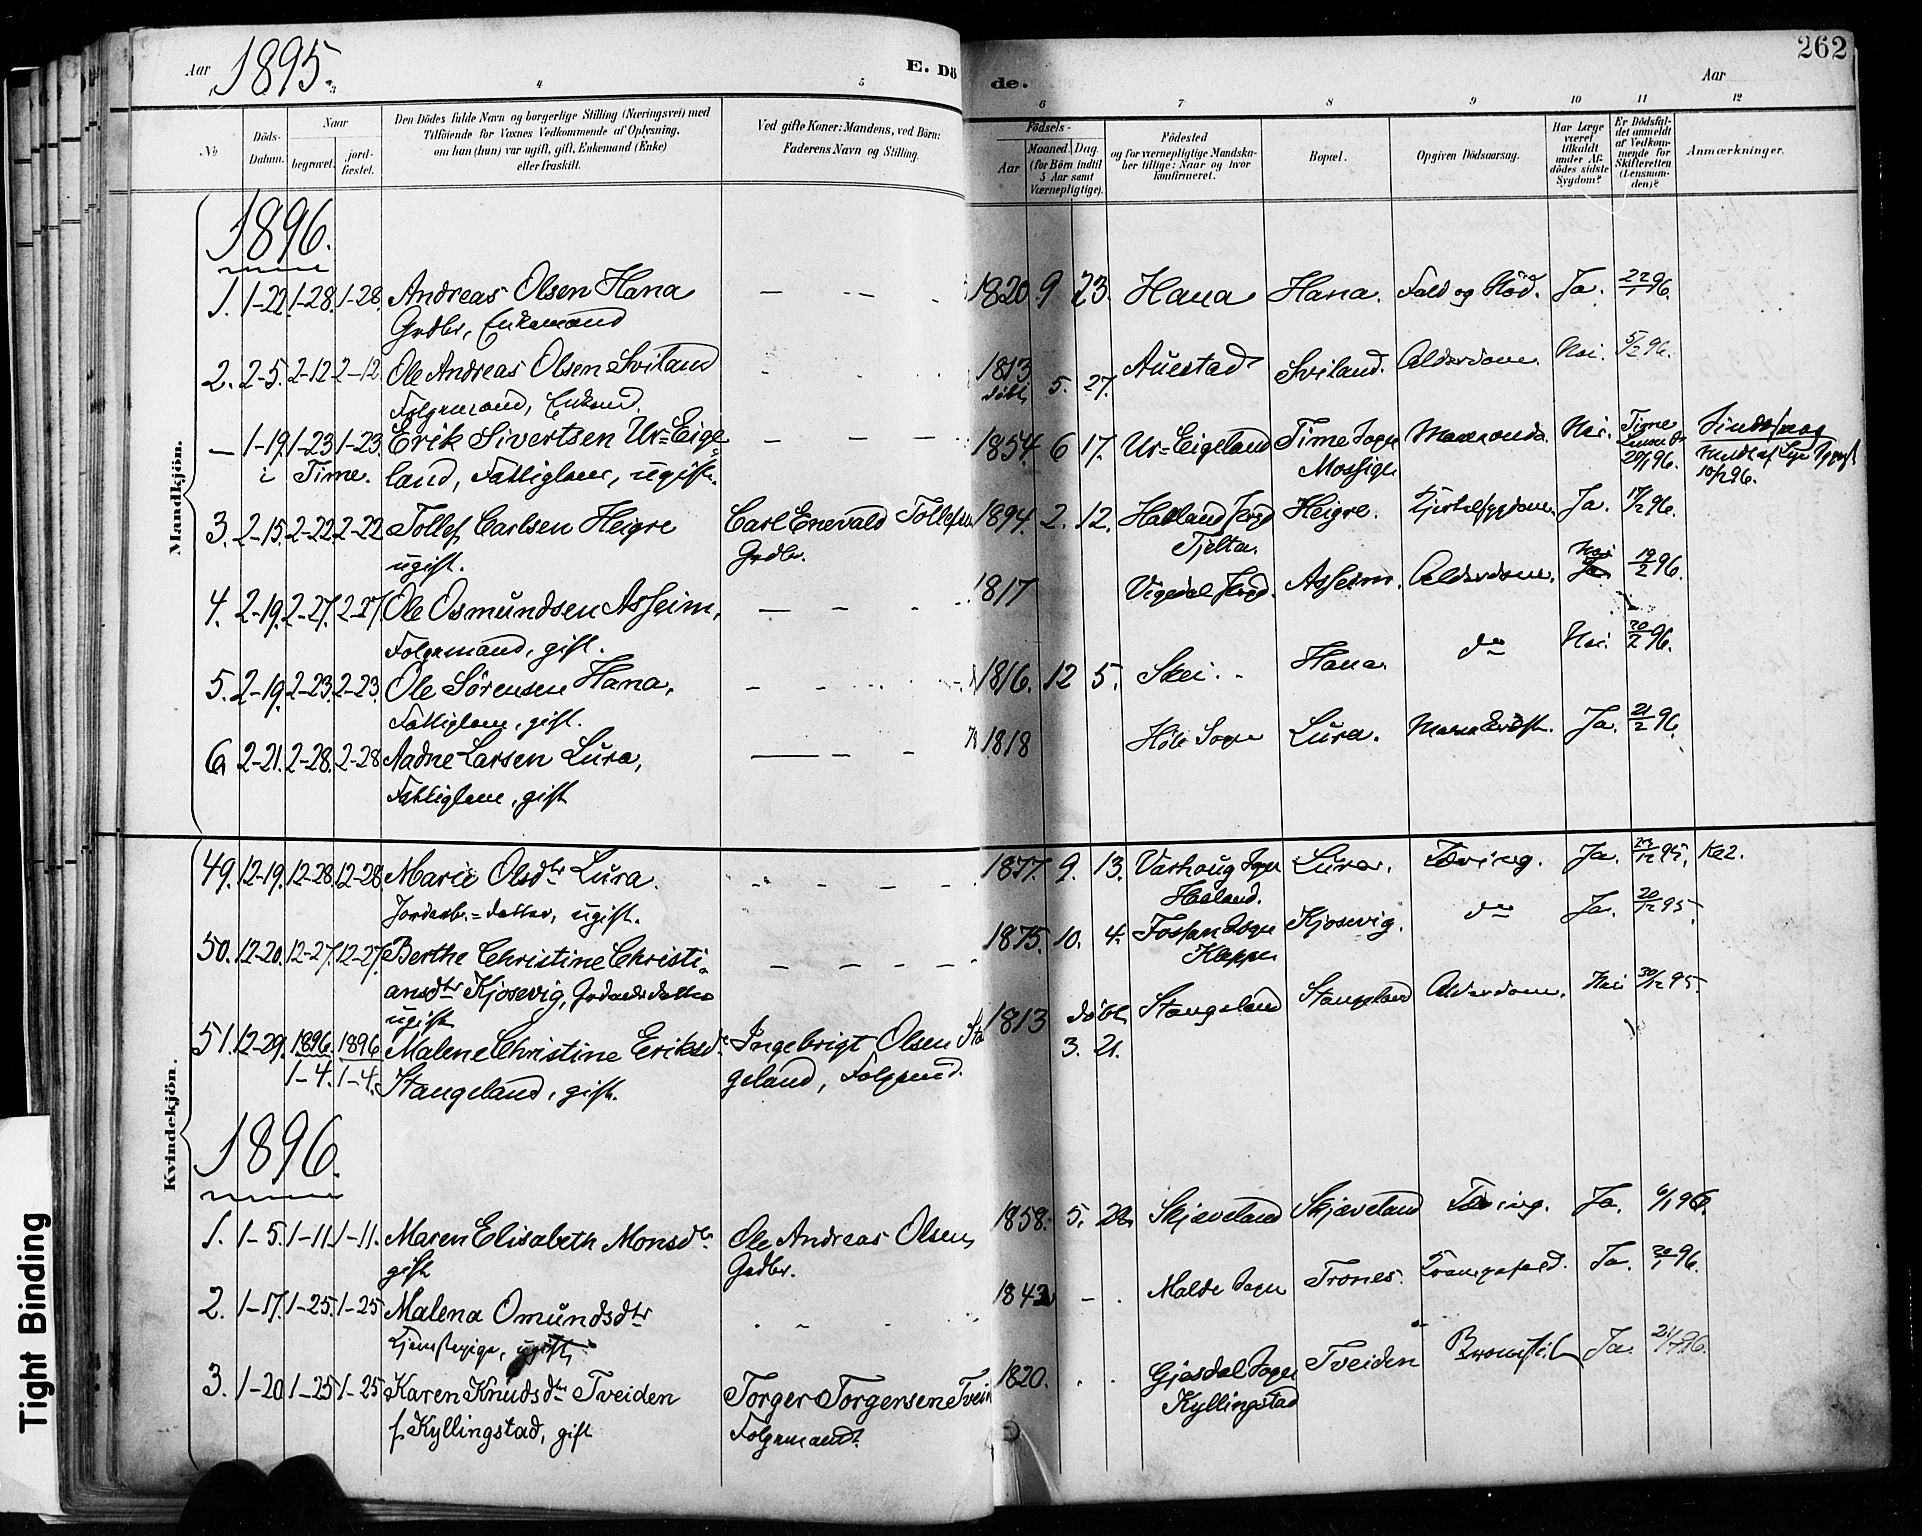 Aar 1895.
E. Dö
de.
262
Aar
3
4
5
6
7
8
9
10
11
12
No
Döds-
Datum.
Naar
begravet.
jord-
fæstet.
Den Dödes fulde Navn og borgerlige Stilling (Næringsvei) med
Tilföiende for Voxnes Vedkommende af Oplysning,
om han (hun) var ugift, gift, Enkemand (Enke)
eller fraskilt.
Ved gifte Koner: Mandens, ved Börn:
Faderens Navn og Stilling.
Födsels-
Aar
Maaned. Dag.
(for Börn indtil
5 Aar samt
Værnepligtige).
Födested
og for værnepligtige Mandska-
ber tillige: Naar og hvor
konfirmeret.
Bopæl.
Opgiven Dödsaarsag.
Har Læge
været
tilkaldt
under Af-
dödes sidste
Sygdom?
Er Dödsfal-
det anmeldt
af Vedkom-
mende for
Skifteretten
(Lensman-
den)?
Anmærkninger.
Mandkjön.
1896.
1. 1-22. 1-28. 1-28. Andreas Olsen Hana — — - 1820. 9 23. Hana Hana. Ja. 22/1 96.
Grdbr, Enkemand
2. 2-5. 2-12 2-12. Ole Andreas Olsen Sviland 1813 5. 27. Auestad Sviland. Alderdom. Nei. 5/2 96.
Folgemand, Enkemd. döbt
— 1-19. 1-23 1-23. Erik Sivertsen Ur=Eige= — — — 1854. 6 17. Ur=Eigeland Time Sogn Nei. Time
i Time. land, Fattiglem, ugift. Mossige 20/1 96. 10/2 96.
3. 2-15. 2-22. 2-22. Tollef Carlsen Heigre Carl Enevald Tollefsen 1894. 2. 12. Haaland Heigre. Ja. 17/2 96.
ugift. Grdbr. Tjelta.
4. 2-19. 2-27. 2-27. Ole Osmundsen Asheim, — - 1817 Vigedal Asheim. Alderdom. Nei Ja 19/2 96.
Folgemand, gift.
5. 2-19. 2-23. 2-23. Ole Sörensen Hana, - - 1816. 12 5. Skei. Hana do Nei. 20/2 96.
Fattiglem, gift.
6. 2-21. 2-28. 2-28. Aadne Larsen Lura, — — - 1818 Höle Sogn Lura. Ja. 21/2 96.
Fattiglem, gift
Kvindekjön.
49. 12-19. 12-28. 12-28 Marie Olsdtr Lura. - - - 1877. 9. 13. Varhoug Sogn Lura. Tæring. Ja. 23/12 95.
datter, ugift. Haaland.
50. 12-20. 12-27. 12-27. Berthe Christine Christi= — — - 1875. 10. 4. Fossan Sogn Kjosevig. do Ja. 20/12 95.
ansdtr Kjosevig, datter
ugift
51. 12-29. 1896 1896 Malene Christine Eriksdr Ingebrigt Olsen Sta 1813 döbt Stangeland Stangeland Alderdom. Nei 30/12 95.
1-4. 1-4. Stangeland, gift. geland, Folgemd. 3. 21.
1896.
1. 1-5. 1-11. 1-11. Maren Elisabeth Monsdtr Ole Andreas Olsen, 1858. 5. Skjæveland Skjæveland Tæring. Ja. 6/1 96.
gift Grdbr.
2. 1-17. 1-25. 1-25 Malena Omundsdtr Malde Sogn Trones. Ja. 20/1 96.
Tjenestepige, ugift,
3. 1-20 1-25 1-25 Karen Knudsdtr Tveiden Torger Torgersen Tvei 1820. Gjesdal Sogn Tveiden Ja.
f. Kyllingstad, gift Folgemand. Kyllingstad
Tight Binding